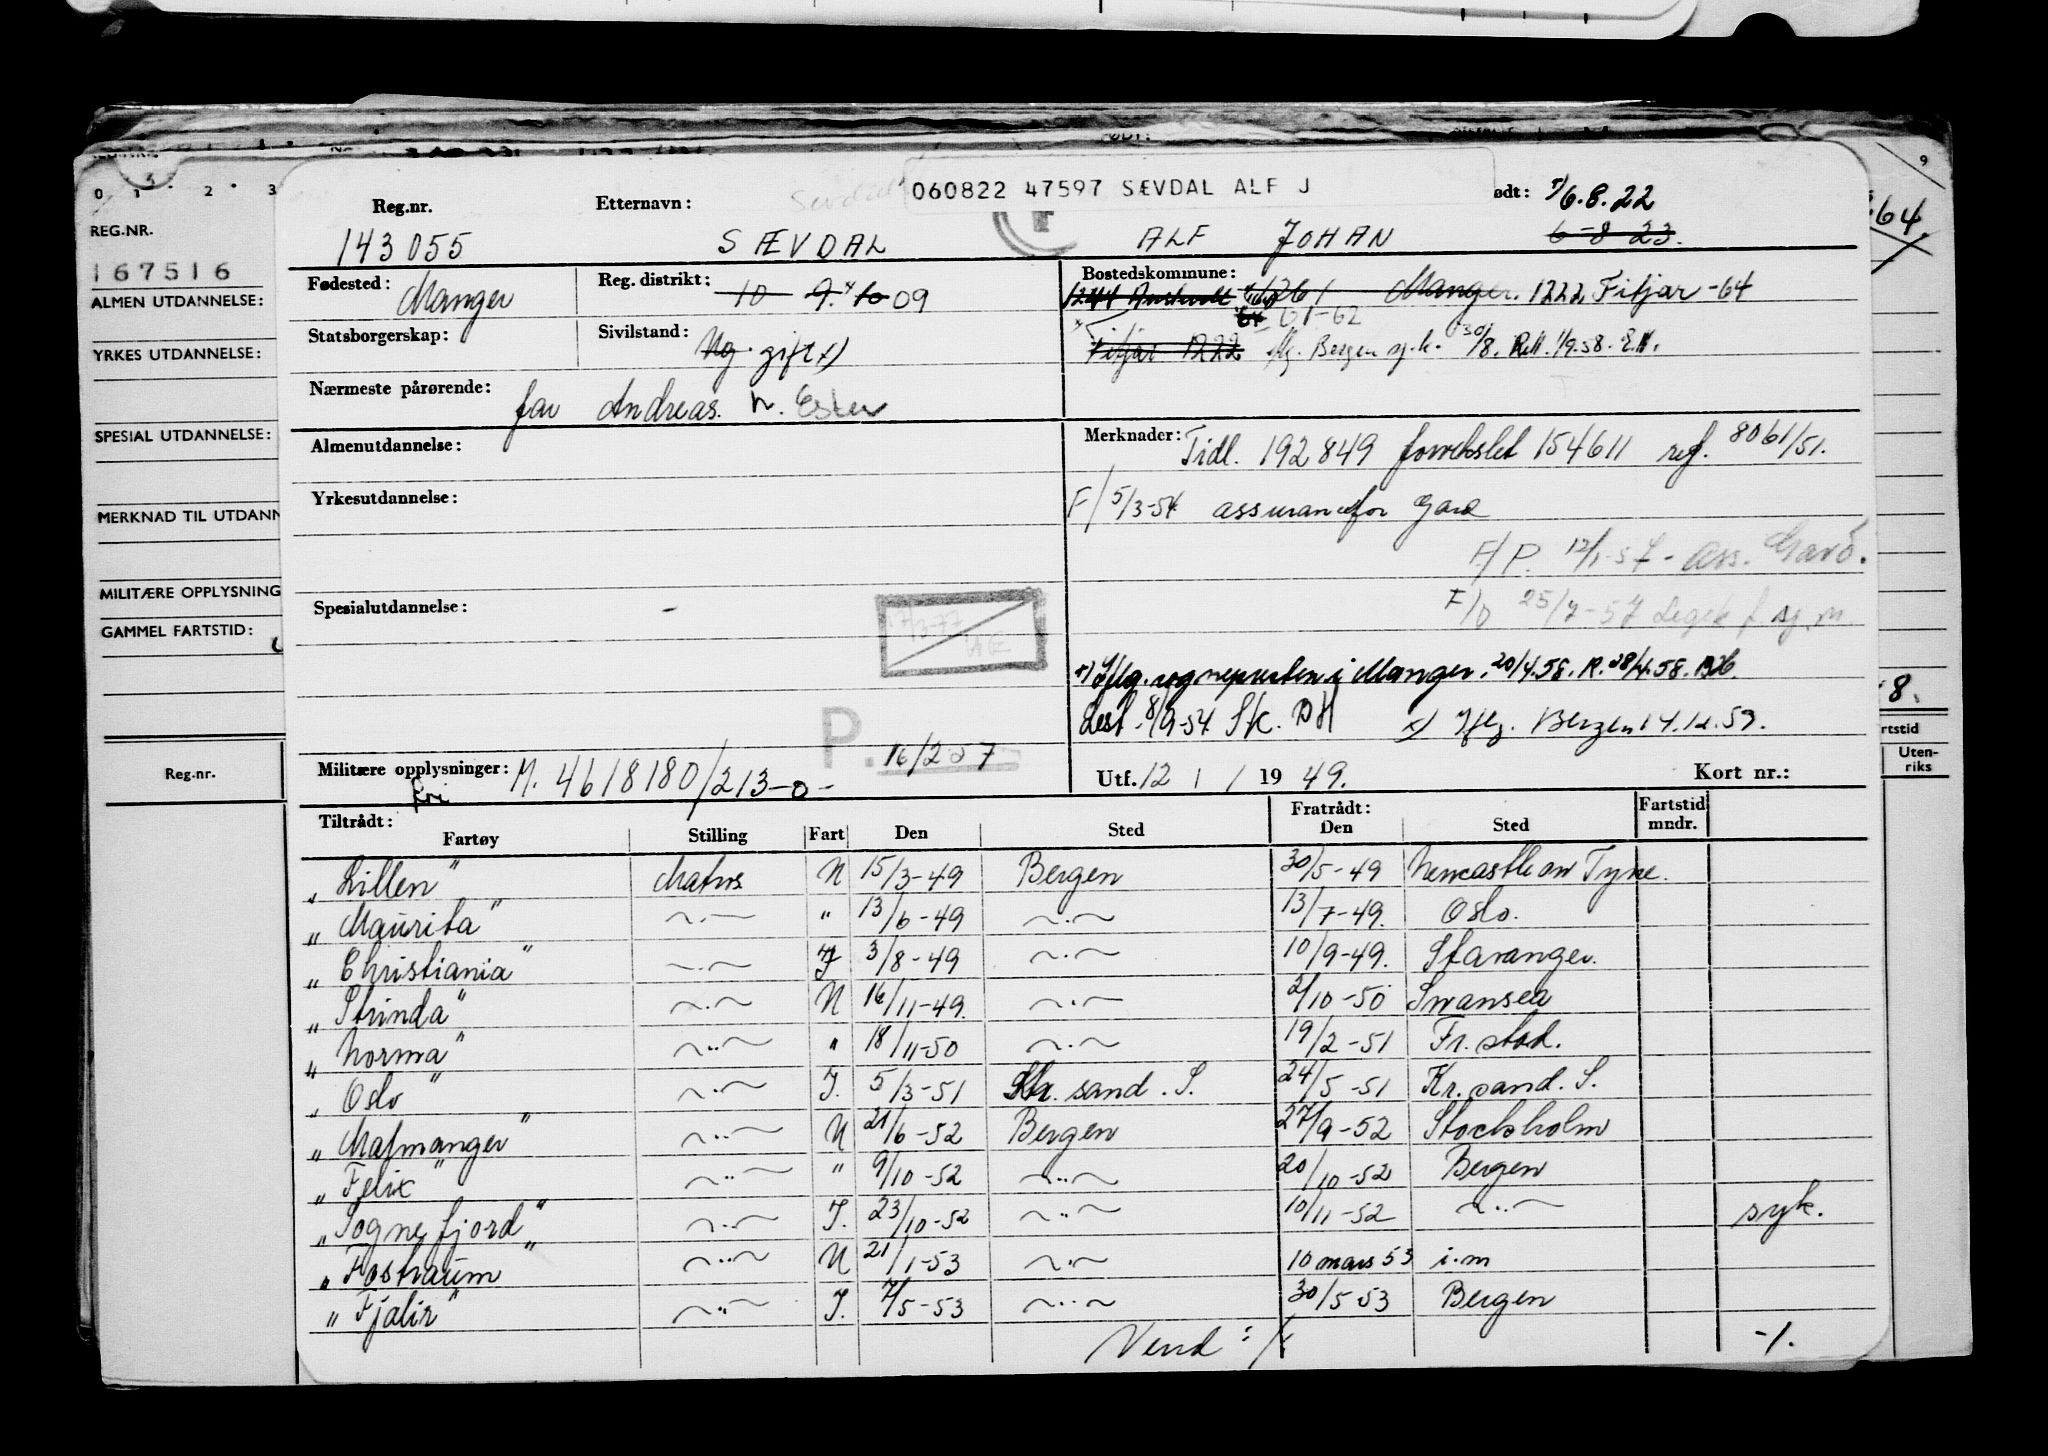 060822 47597 SÆVDAL ALF J
Reg.nr. Etternavn: ødt: 6.8.22
143055 SÆVDAL ALF JOHAN 6-8 23.
REG.NR.
167516
ALMEN UTDANNELSE:
YRKES UTDANNELSE:
SPESIAL UTDANNELSE:
MERKNAD TIL UTDANN
MILITÆRE OPPLYSNING
GAMMEL FARTSTID:
Reg.nr.
Fødested: Manger Reg. distrikt: 10 9. 10 09 Bostedskommune: 1244 1261 Manger. 1222 Fitjar -64
64 61-62
Statsborgerskap: Sivilstand: Ug. gift x) Fitjar 1222 iflg. Bergen sj.k. 30/8. Rell. 1/9.58. E.H.
Nærmeste pårørende: far Andreas. h. Ester
Almenutdannelse: Merknader: Tidl. 192849 forvekslet 154611 ref. 8061/51.
Yrkesutdannelse: F/5/3-54 assurancefor Gard
F/P. 12/1-57 - Ass. Gard.
Spesialutdannelse: - F/D 25/7-57 Legek f. sj.m.
17/3-77
Iflg. sognepresten i Manger. 20/4.58. R. 28/4.58.
Lest. 8/9-54 Sk. DH x) Iflg. Bergen 14.12.59.
P. 16/2 57
Militære opplysninger: M. 4618180/213-0- Utf. 12 / 1 19 49. Kort nr.:
fri
Tiltrådt: Fratrådt: Fartstid mndr.
Fartøy Stilling Fart Den Sted Den Sted
„Lillen" Matros N 15/3-49 Bergen 30/5-49 Newcastle on Tyne.
„Maurita" ~.~ " 13/6-49 ~.~ 13/7-49. Oslo.
„Christiania" ~.~ I 3/8-49 ~.~ 10/9-49. Stavanger.
„Strinda" ~.~ N 16/11-49. ~.~ 2/10-50 Swansea
„Norma" ~..~ " 18/11-50 ~.~ 19/2-51 Fr.stad.
„Oslo" ~.~ I. 5/3-51 Kr. sand. S. 24/5-51 Kr. sand. S.
„Malmanger" ~..~ N 21/6-52 Bergen 27/9-52 Stockholm
„Felix" ~..~ " 9/10-52 ~..~ 20/10-52 Bergen
„Sognefjord" ~..~ I. 23/10-52 ~..~ 10/11-52 ~..~ syk.
„Fostraum" ~..~ N 21/1-53 ~.~ 10 mars 53 i.m
„Fjalir" ~..~ I. 7/5-53 ~..~ 30/5 53 Bergen
Vend :/. -/.
9
64.
8.
rtstid
Uten-
riks